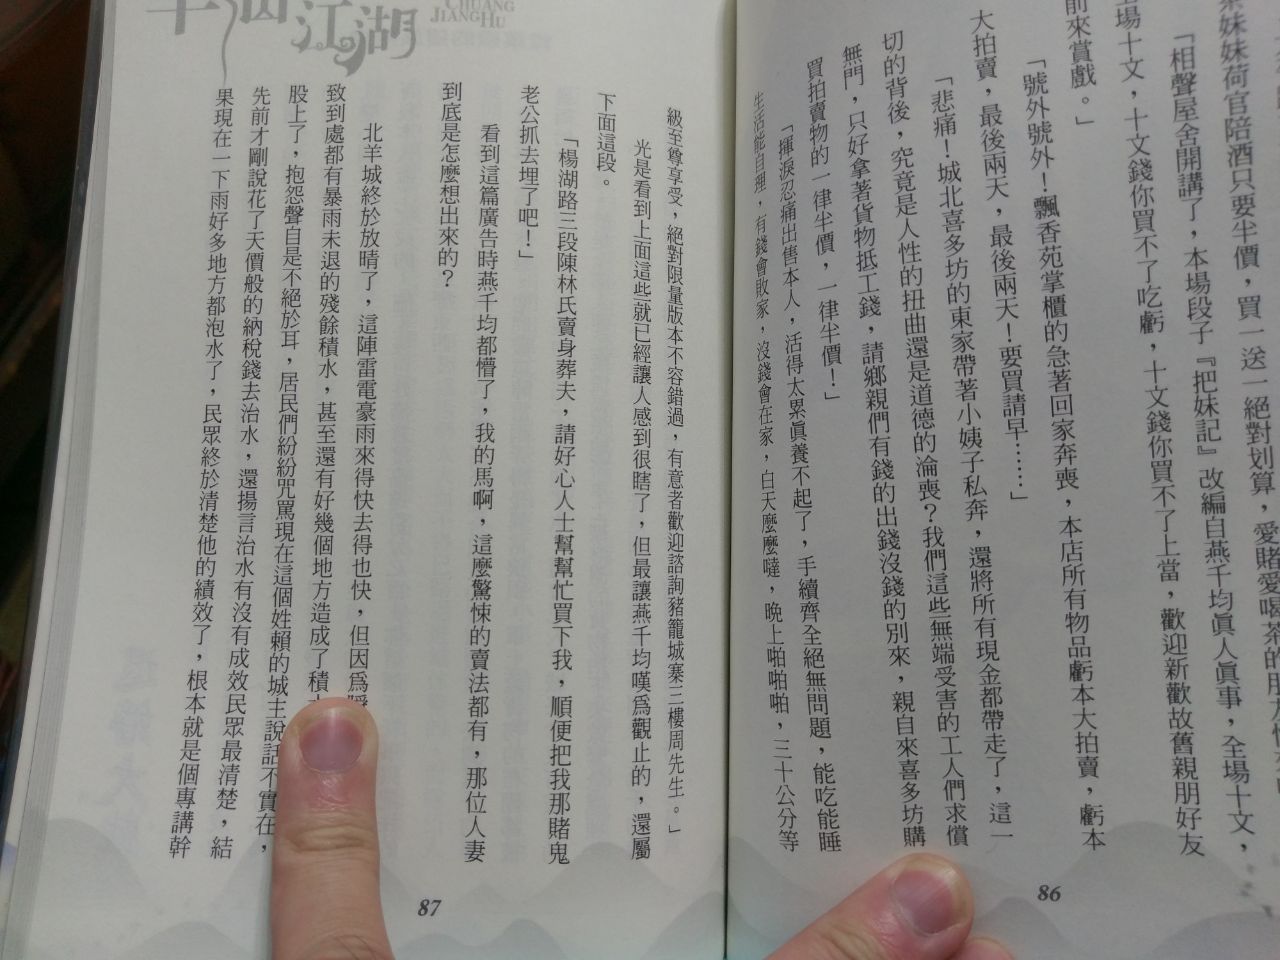 妹妹荷官陪酒只要半價，買一送一絕對划算，愛賭愛喝茶的朋友
「相聲屋舍開講了，本場段子『把妹記』改編自燕千均眞人眞事，全場十文，
全場十文，十文錢你買不了吃虧，十文錢你買不了上當，歡迎新歡故舊親朋好友
前來賞戲。」
「號外號外！飄香苑掌櫃的急著回家奔喪，本店所有物品虧本大拍賣，虧本
大拍賣，最後兩天，最後兩天！要買請早……」
「悲痛！城北喜多坊的東家帶著小姨子私奔，還將所有現金都帶走了，這一
切的背後，究竟是人性的扭曲還是道德的淪喪？我們這些無端受害的工人們求償
無門，只好拿著貨物抵工錢，請鄉親們有錢的出錢沒錢的別來，親自來喜多坊購
買拍賣物的一律半價，一律半價！」
「揮淚忍痛出售本人，活得太累眞養不起了，手續齊全絕無問題，能吃能睡
生活能自理，有錢會敗家，沒錢會在家，白天麼麼噠，晚上啪啪啪，三十公分等
86
CHUANG
JIANGHU
江湖
級至尊享受，絕對限量版本不容錯過，有意者歡迎諮詢豬籠城寨三樓周先生。」
光是看到上面這些就已經讓人感到很瞎了，但最讓燕千均嘆爲觀止的，還屬
下面這段。
「楊湖路三段陳林氏賣身葬夫，請好心人士幫幫忙買下我，順便把我那賭鬼
老公抓去埋了吧！」
看到這篇廣告時燕千均都懵了，我的馬啊，這麼驚悚的賣法都有，那位人妻
到底是怎麼想出來的？
北羊城終於放晴了，這陣雷電豪雨來得快去得也快，但因爲
致到處都有暴雨未退的殘餘積水，甚至還有好幾個地方造成了積
股上了，抱怨聲自是不絕於耳，居民們紛紛咒罵現在這個姓賴的城主說話不實在，
先前才剛說花了天價般的納稅錢去治水，還揚言治水有沒有成效民眾最清楚，結
果現在一下雨好多地方都泡水了，民眾終於清楚他的績效了，根本就是個專講幹
87